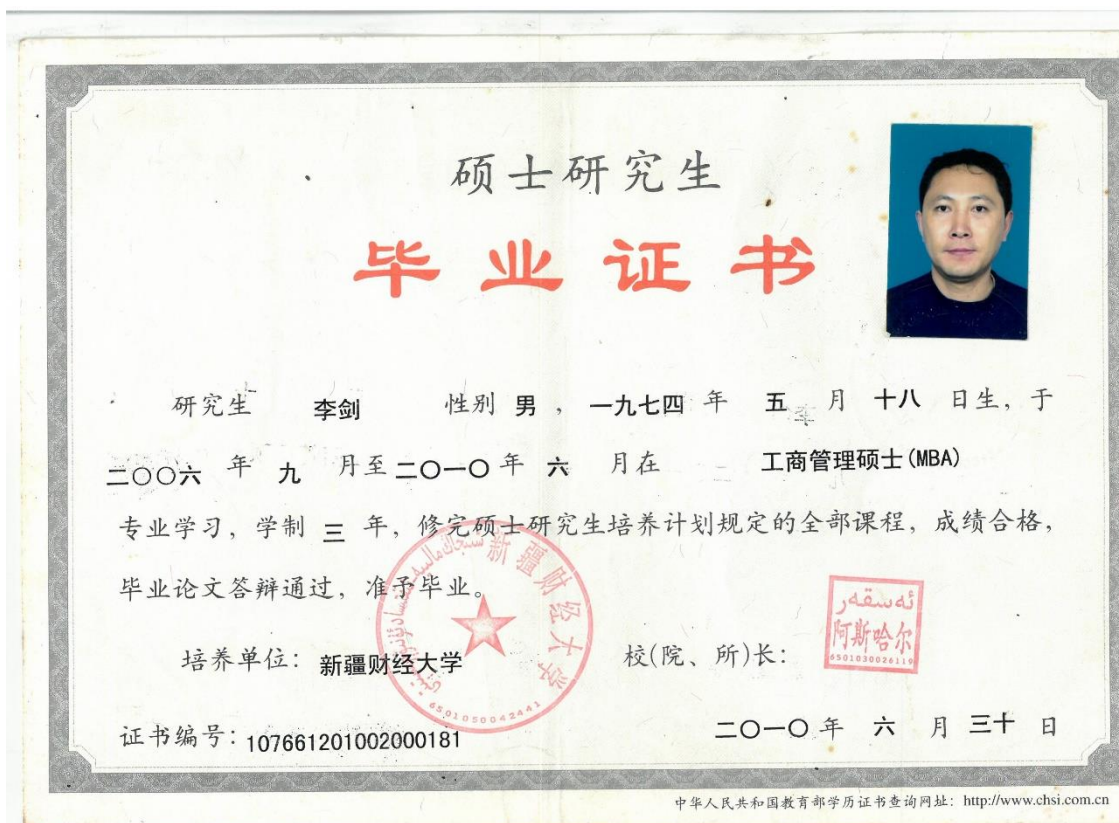 硕士研究生
毕业证书
研究生 李剑 性别 男 ， 一九七四 年 五 月 十八 日生，于
二〇〇六 年 九 月至 二〇一〇 年 六 月在 工商管理硕士(MBA)
专业学习，学制 三 年，修完硕士研究生培养计划规定的全部课程，成绩合格，
毕业论文答辩通过，准予毕业。
新疆财经大学
6501050042441
培养单位：新疆财经大学
校(院、所)长：
ئەسقەر
阿斯哈尔
6501030026119
证书编号：107661201002000181
二〇一〇 年 六 月 三十 日
中华人民共和国教育部学历证书查询网址：http://www.chsi.com.cn